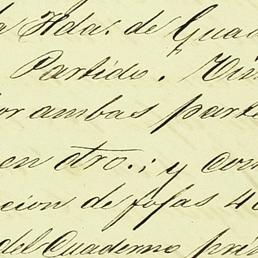 a Hda. de Guad
Partido.
or ambas parte
en dro.; y com
cion de fojas 40
del Cuaderno pri